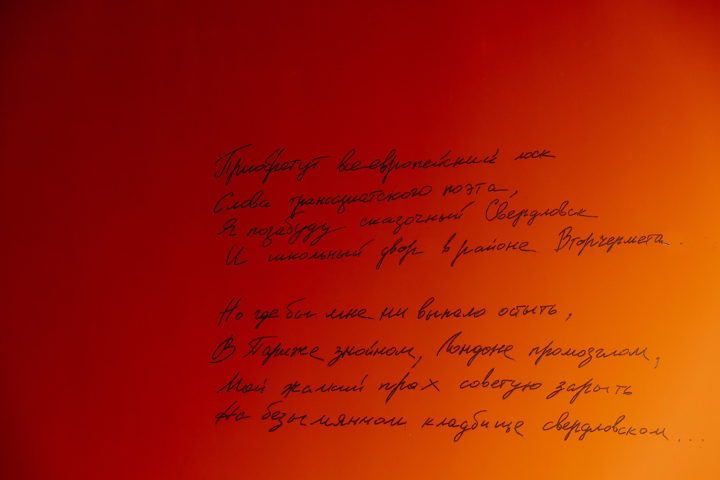 Приобретут всеевропейский лоск
Слова трансазиатского поэта,
Я позабуду сказочный Свердловск
И школьный двор в районе Вторчермета.
Но где бы мне ни выпало остыть,
В Париже знойном, Лондоне промозглом,
Мой жалкий прах советую зарыть
На безымянном кладбище свердловском...